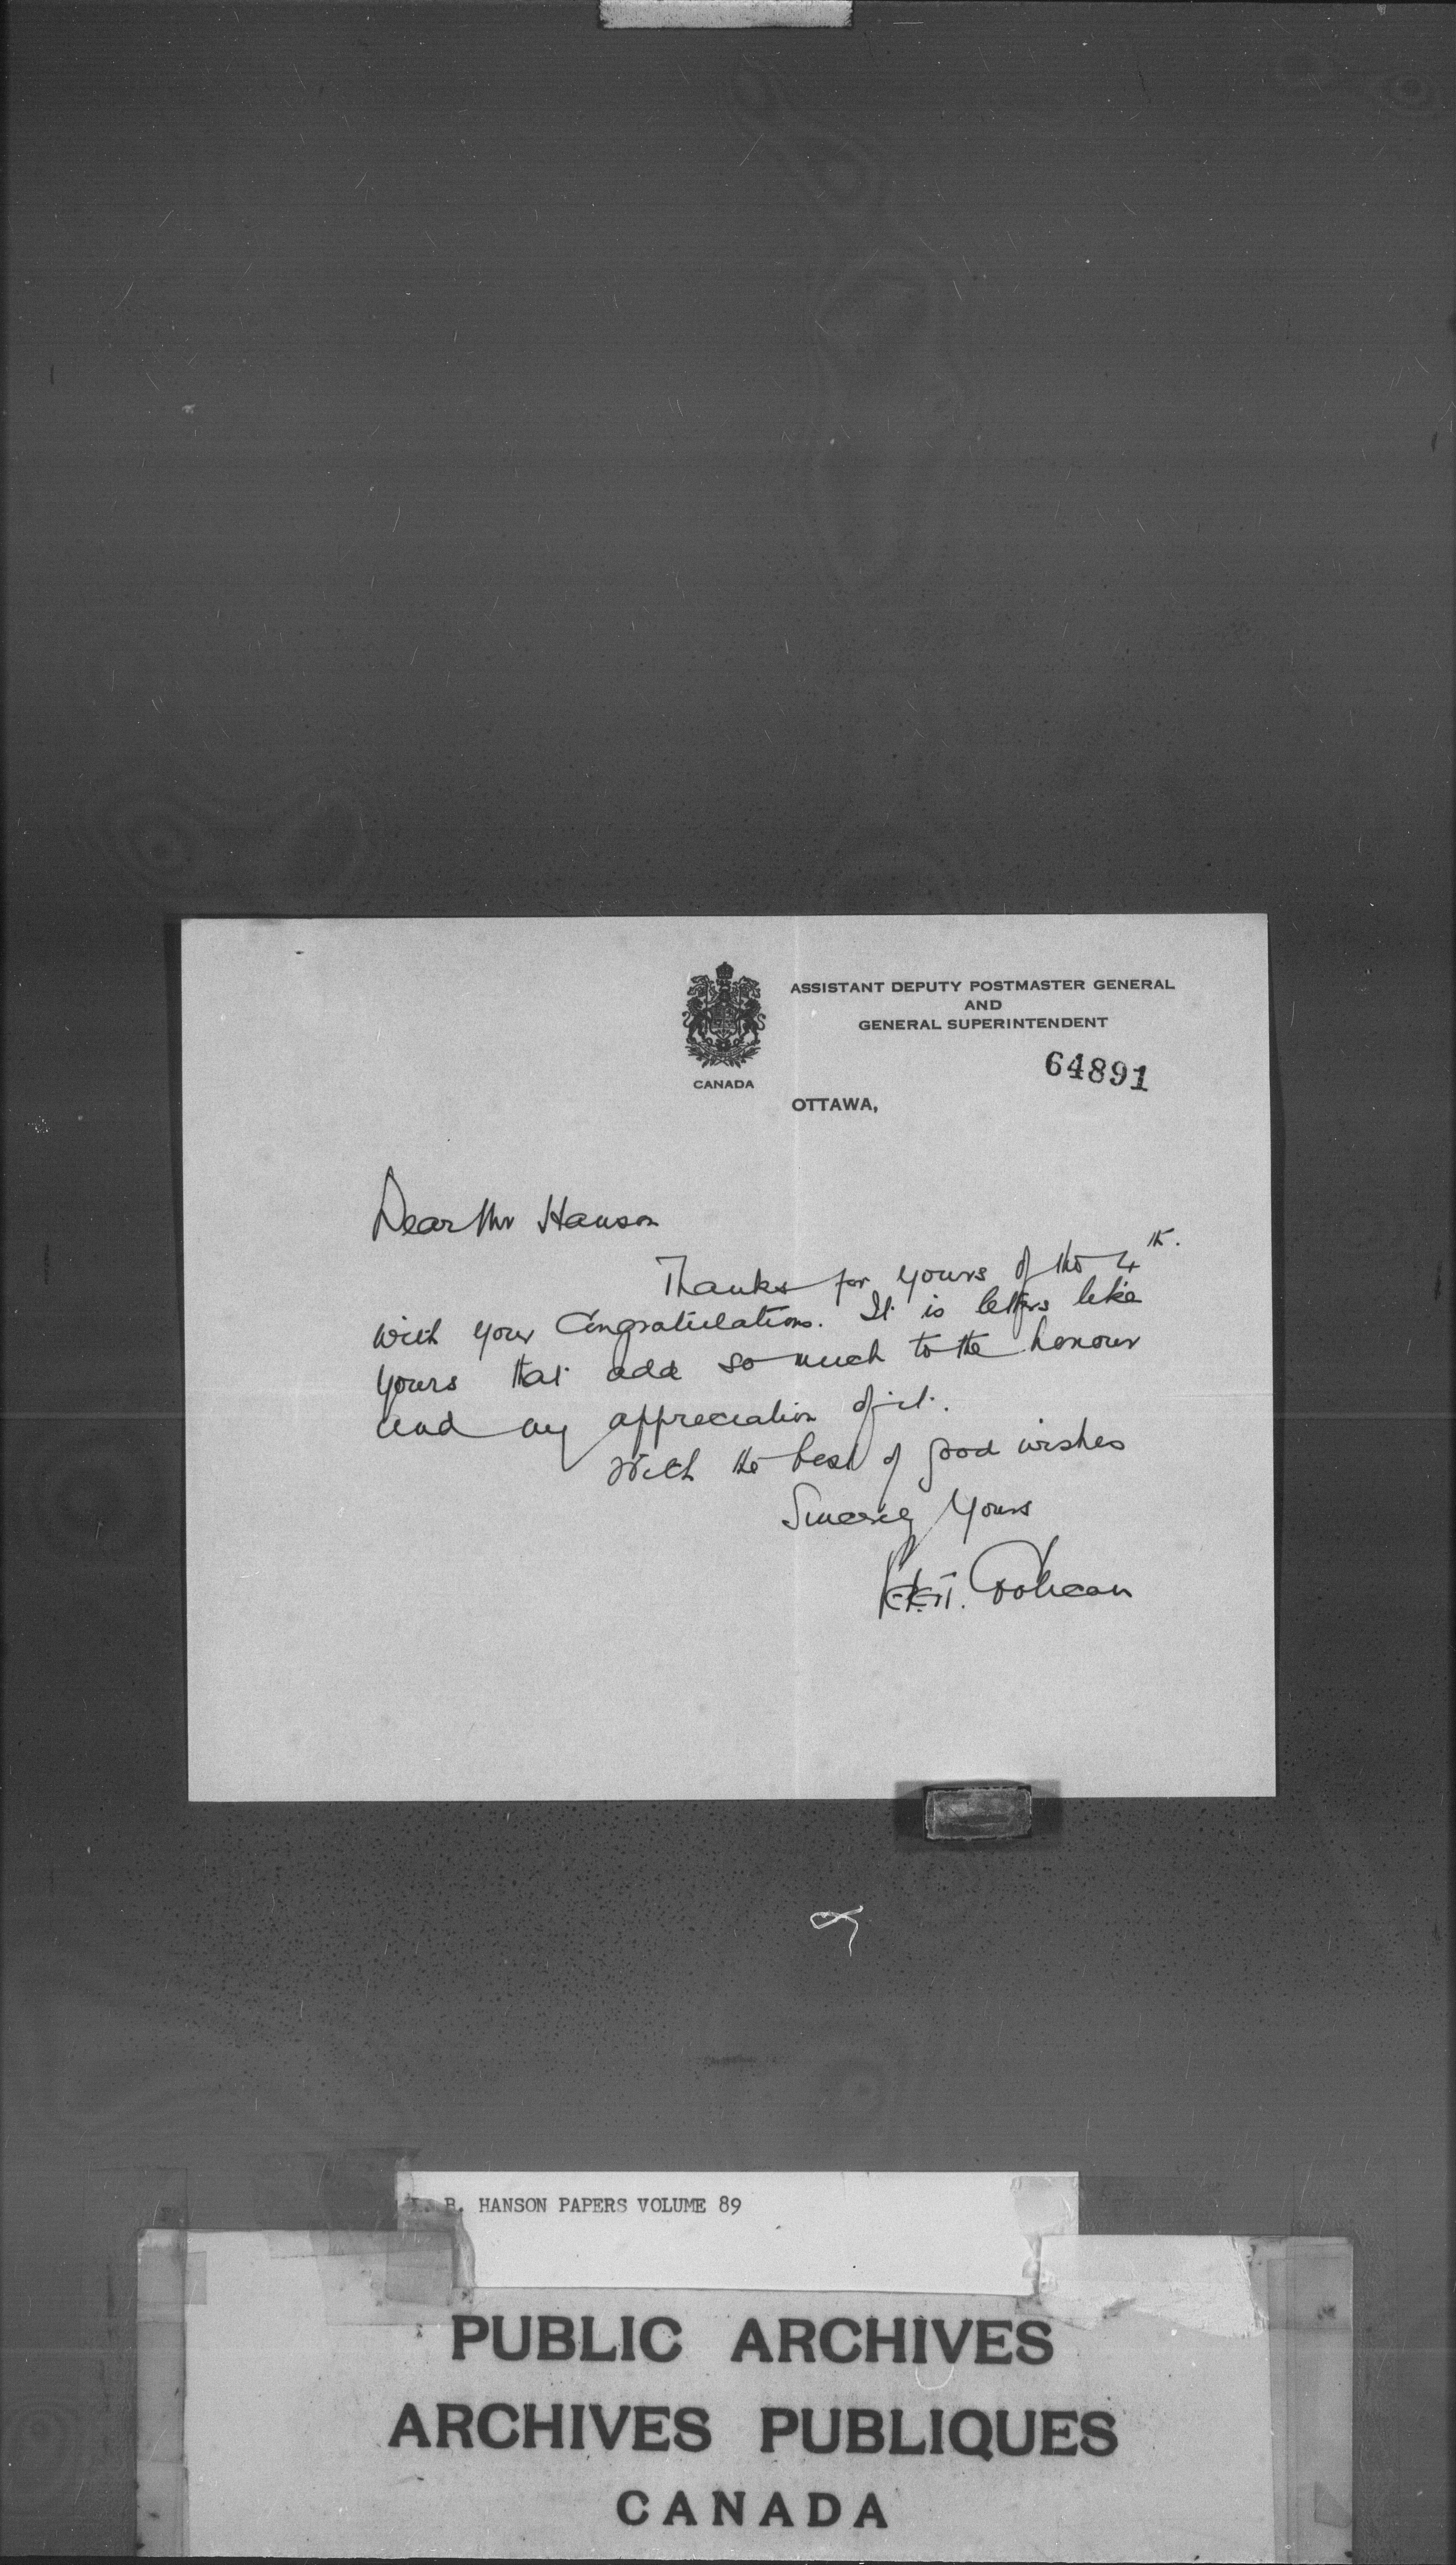 ASSISTANT DEPUTY POSTMASTER GENERAL
AND
GENERAL SUPERINTENDENT
64891
CANADA
OTTAWA,
Dear Mr Hanson
Thanks for yours of the 4th.
with your Congratulations. It is letters like
yours that add so much to the honour
and my appreciation of it.
With the best of good wishes
Sincerely Yours
B. HANSON PAPERS VOLUME 89
PUBLIC ARCHIVES
ARCHIVES PUBLIQUES
CANADA